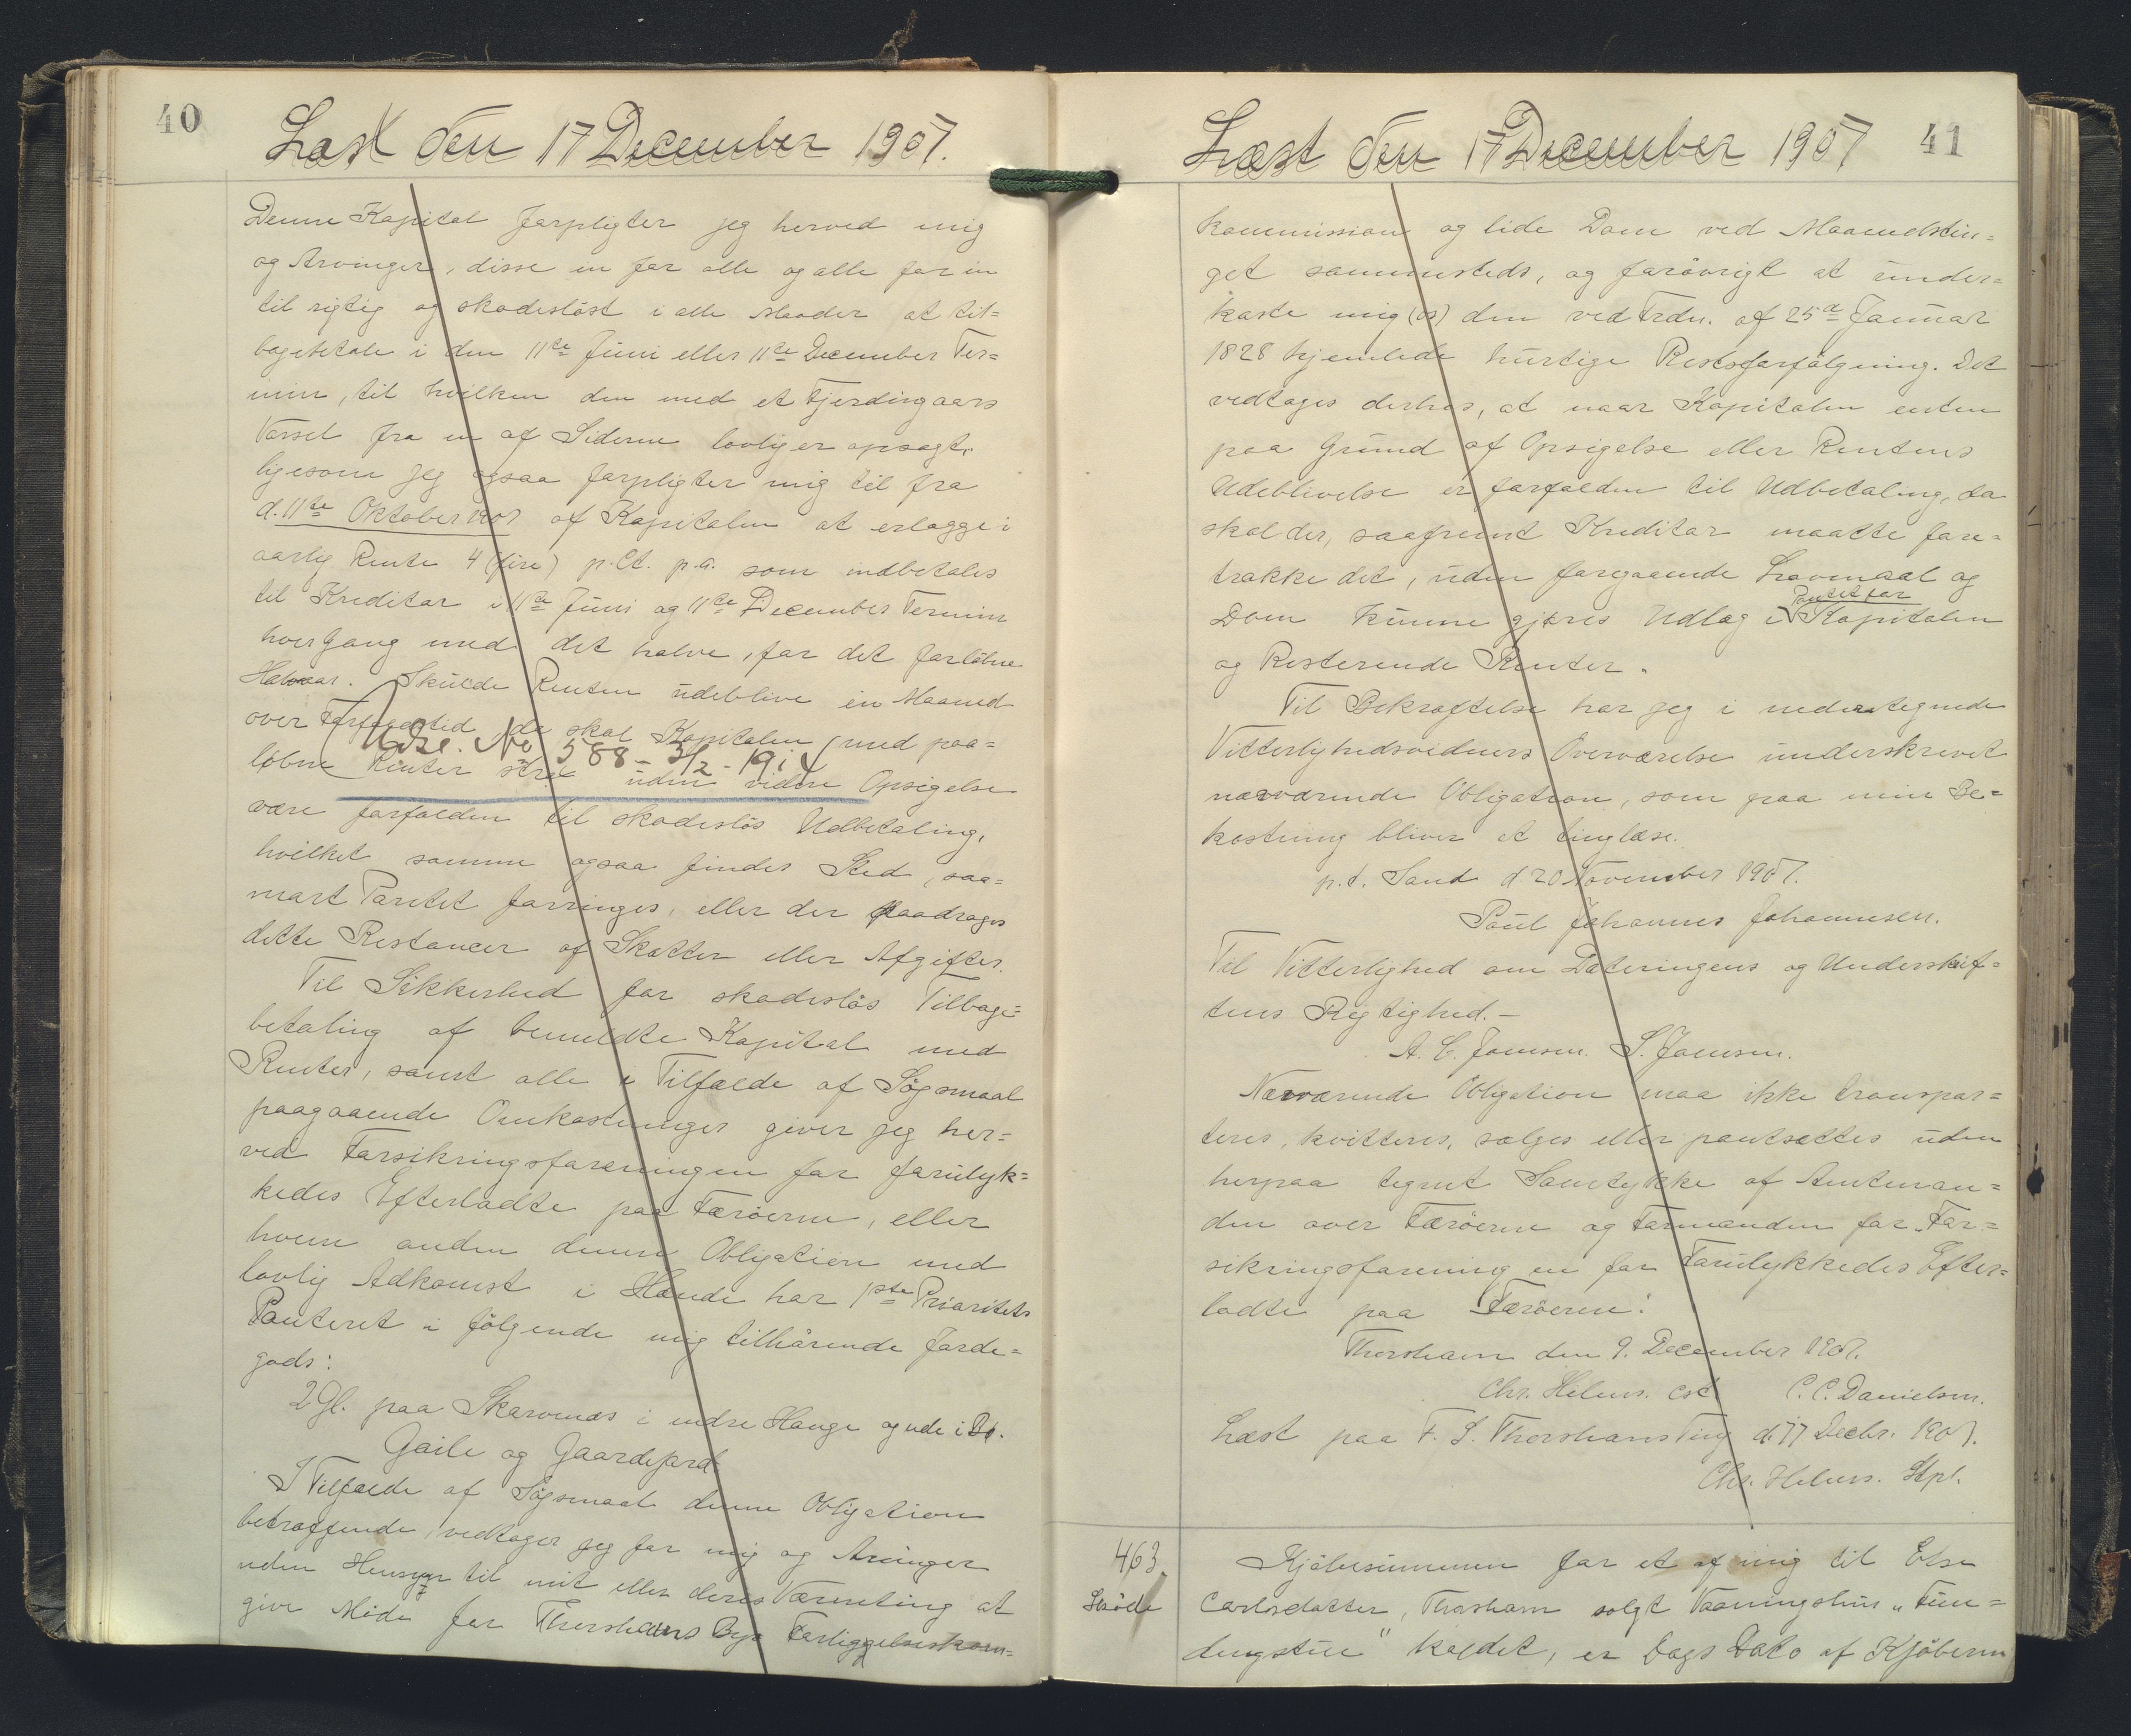 40
Læst den 17 December 1907.
Denne Kapital forpligter jeg herved mig
og Arvinger, disse en for alle og alle for en
til rigtig og skadesløst i alle Maader at til=
bagebetale i den 11te Juni eller 11te December Ter=
min, til hvilken den med et Fjerdingaars
Varsel fra en af Siderne lovlig er opsagt,
ligesom jeg ogsaa forpligter mig til fra
d. 11te Oktober 1907 af Kapitalen at erlægge i
aarlig Rente 4 (fire) p.Ct. p.a. som indbetales
til Kreditor i 11te Juni og 11te December Termin
hver Gang med det halve, for det forløbne
Halvaar. Skulde Renten udeblive en Maaned
over Forfaldstid, da skal Kapitalen med paa=
Udsl. No 588 - 3/2 - 1914
løbne Renter strax uden videre Opsigelse
være forfalden til skadesløs Udbetaling,
hvilket samme ogsaa finder Sted, saa=
snart Pantet forringes, eller der paadrages
dette Restancer af Skatter eller Afgifter.
Til Sikkerhed for skadesløs Tilbage=
betaling af bemeldte Kapital med
Renter, samt alle i Tilfælde af Søgsmaal
paagaaende Omkostninger giver jeg her=
ved Forsikringsforeningen for forulyk=
kedes Efterladte paa Færøerne, eller
hvem anden denne Obligation med
lovlig Adkomst i Hænde har 1ste Prioritets
Panteret i følgende mig tilhørende Jorde=
gods:
2 Gl. paa Skarvenæs i indre Hauge og ude i Bø.
Gaile og Gaardejord
I Tilfælde af Søgsmaal denne Obligation
betræffende, vedtager jeg for mig og Arvinger
uden Hensyn til mit eller deres Værneting at
give Møde for Thorshavns Byes Forligelseskom=
41
Læst den 17 December 1907
kommission og lide Dom ved Maanedstin=
get sammesteds, og forøvrigt at under=
kaste mig (os) den ved Frdn. af 25de Januar
1828 hjemlede hurtige Retsforfølgning. Det
vedtages derhos, at naar Kapitalen enten
paa Grund af Opsigelse eller Rentens
Udeblivelse er forfalden til Udbetaling, da
skal der, saafremt Kreditor maatte fore=
trække det, uden foregaaende Lovmaal og
Pantet for
Dom kunne gjøres Udlæg i Kapitalen
og Resterende Renter.
Til Bekræftelse har jeg i undertegnede
Vitterlighedsvidners Overværelse underskrevet
nærværende Obligation, som paa min Be=
kostning bliver at tinglæse.
p.t. Sand d. 20 November 1907.
Poul Johannes Johannesen.
Til Vitterlighed om Dateringens og Underskrif=
tens Rigtighed.-
A. C. Joensen. S. Joensen.
Nærværende Obligation maa ikke transpor=
teres, kvitteres, sælges eller pantsættes uden
herpaa tegnet Samtykke af Amtman=
den over Færøerne og Formanden for For=
sikringsforening en for Forulykkedes Efter=
ladte paa Færøerne.
Thorshavn den 9. December 1907.
Chr. Helms. cst C. C. Danielsen.
Læst paa F. S. Thorshavns Ting d. 17 Decbr. 1907.
Chr. Helms. Stpl.
463.
Skøde
Kjøbesummen for et af mig til Else
Carlsdatter, Thorshavn solgt Vaaningshus "Fun=
dingstue" kaldet, er Dags Dato af Kjøberen